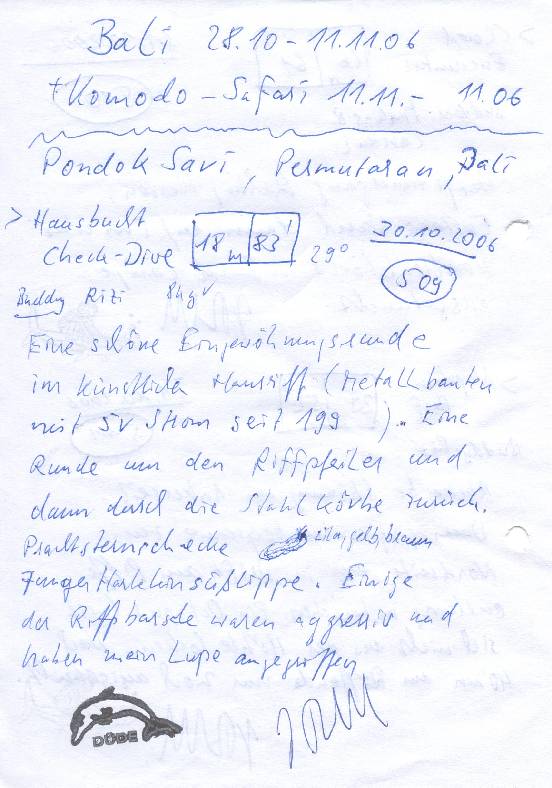 Bali 28.10 - 11.11.06
+ Komodo - Safari 11.11. - 11.06
Pondok Sari, Permutaran, Bali
> Hausbucht 30.10.2006
Check-Dive 18m 83' 29° 509
Buddy Rizi 8kg
Eine schöne Eingewöhnungsrunde
im künstlichen Hausriff (Metallbauten
mit 5V Strom seit 199 ). Eine
Runde um den Riffpfeiler und
dann durch die Stahlkörbe zurück.
Prachtsternschnecke lila, gelb, braun
Junger Harlekinsüßlippe. Einige
der Riffbarsche waren aggressiv und
haben mein Lupe angegriffen
DUDE